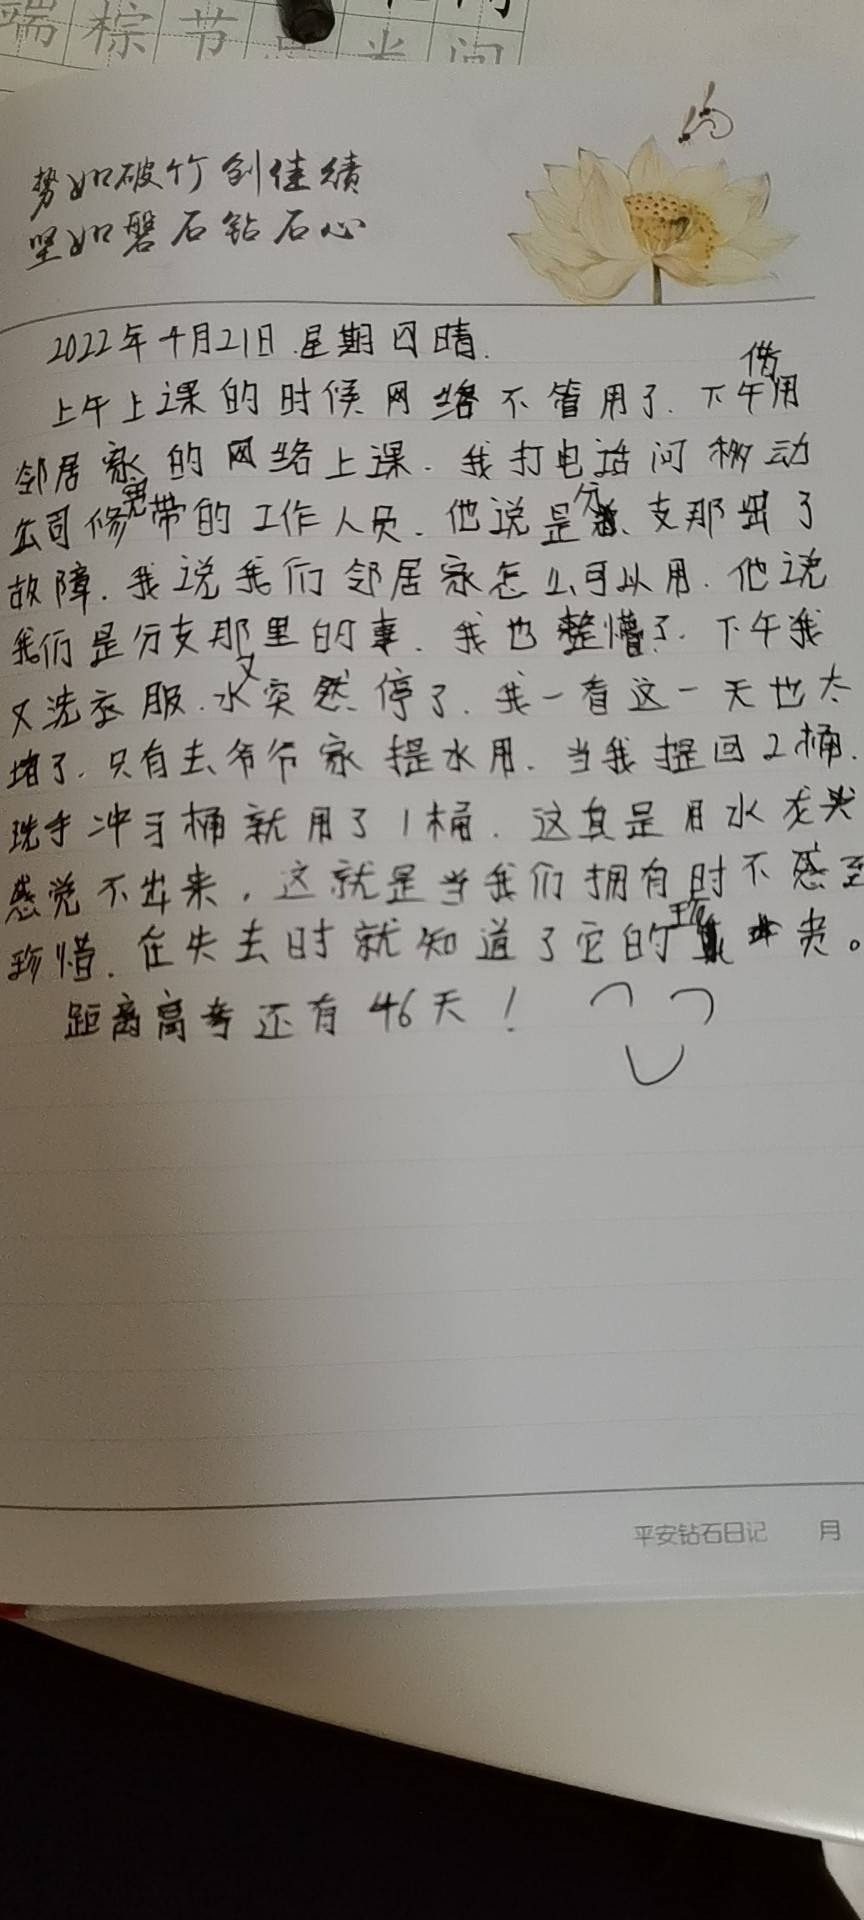 端棕节
势如破竹创佳绩
坚如磐石钻石心
2022年4月21日.星期四晴.
上午上课的时候网络不管用了.下午借用
邻居家的网络上课.我打电话问移动
公司修宽带的工作人员.他说是分支那出了
故障.我说我们邻居家怎么可以用.他说
我们是分支那里的事.我也整懵了.下午我
又洗衣服.水又突然停了.我一看这一天也太
堵了.只有去爷爷家提水用.当我提回2桶.
洗手冲牙桶就用了1桶.这真是用水龙头
感觉不出来,这就是当我们拥有时不感至
珍惜.在失去时就知道了它的珍贵。
距离高考还有46天!
平安钻石日记 月